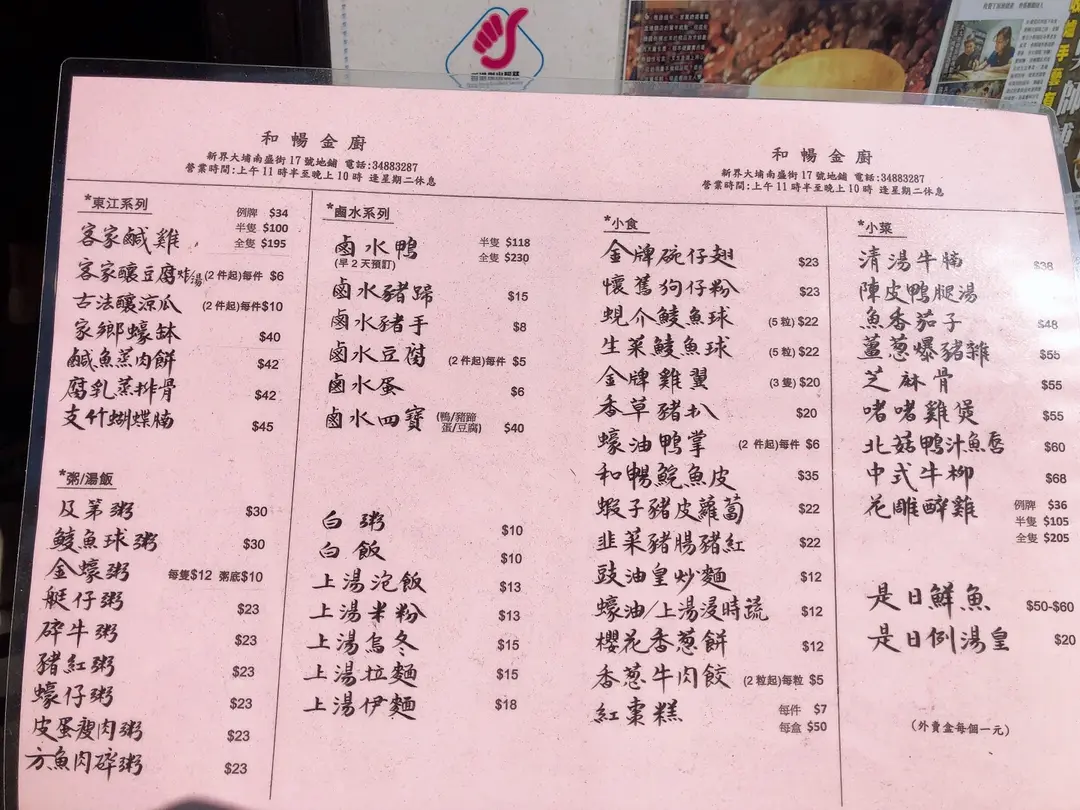 和暢金廚
新界大埔南盛街17號地鋪 電話:34883287
營業時間:上午11時半至晚上10時 逢星期二休息
和暢金廚
新界大埔南盛街17號地鋪 電話:34883287
營業時間:上午11時半至晚上10時 逢星期二休息
*東江系列
客家鹹雞 例牌 $34
半隻 $100
全隻 $195
客家釀豆腐炸/湯(2件起)每件 $6
古法釀涼瓜 (2件起)每件$10
家鄉蠔缽 $40
鹹魚蒸肉餅 $42
腐乳蒸排骨 $42
支竹蝴蝶腩 $45
*粥/湯飯
及第粥 $30
鯪魚球粥 $30
金蠔粥 每隻$12 粥底$10
艇仔粥 $23
碎牛粥 $23
豬紅粥 $23
蠔仔粥 $23
皮蛋瘦肉粥 $23
方魚肉碎粥 $23
*鹵水系列
鹵水鴨 半隻 $118
(早2天預訂) 全隻 $230
鹵水豬蹄 $15
鹵水豬手 $8
鹵水豆腐 (2件起)每件 $5
鹵水蛋 $6
鹵水四寶 (鴨/豬蹄
蛋/豆腐) $40
白粥 $10
白飯 $10
上湯泡飯 $13
上湯米粉 $13
上湯烏冬 $15
上湯拉麵 $15
上湯伊麵 $18
*小食
金牌碗仔翅 $23
懷舊狗仔粉 $23
蜆介鯪魚球 (5粒) $22
生菜鯪魚球 (5粒) $22
金牌雞翼 (3隻) $20
香草豬扒 $20
蠔油鴨掌 (2件起)每件 $6
和暢鯇魚皮 $35
蝦子豬皮蘿蔔 $22
韭菜豬腸豬紅 $22
豉油皇炒麵 $12
蠔油/上湯浸時蔬 $12
櫻花香葱餅 $12
香葱牛肉餃 (2粒起)每粒 $5
紅棗糕 每件 $7
每盒 $50
*小菜
清湯牛腩 $38
陳皮鴨腿湯
魚香茄子 $48
薑葱爆豬雜 $55
芝麻骨 $55
啫啫雞煲 $55
北菇鴨汁魚唇 $60
中式牛柳 $68
花雕醉雞 例牌 $36
半隻 $105
全隻 $205
是日鮮魚 $50-$60
是日例湯皇 $20
(外賣盒每個一元)